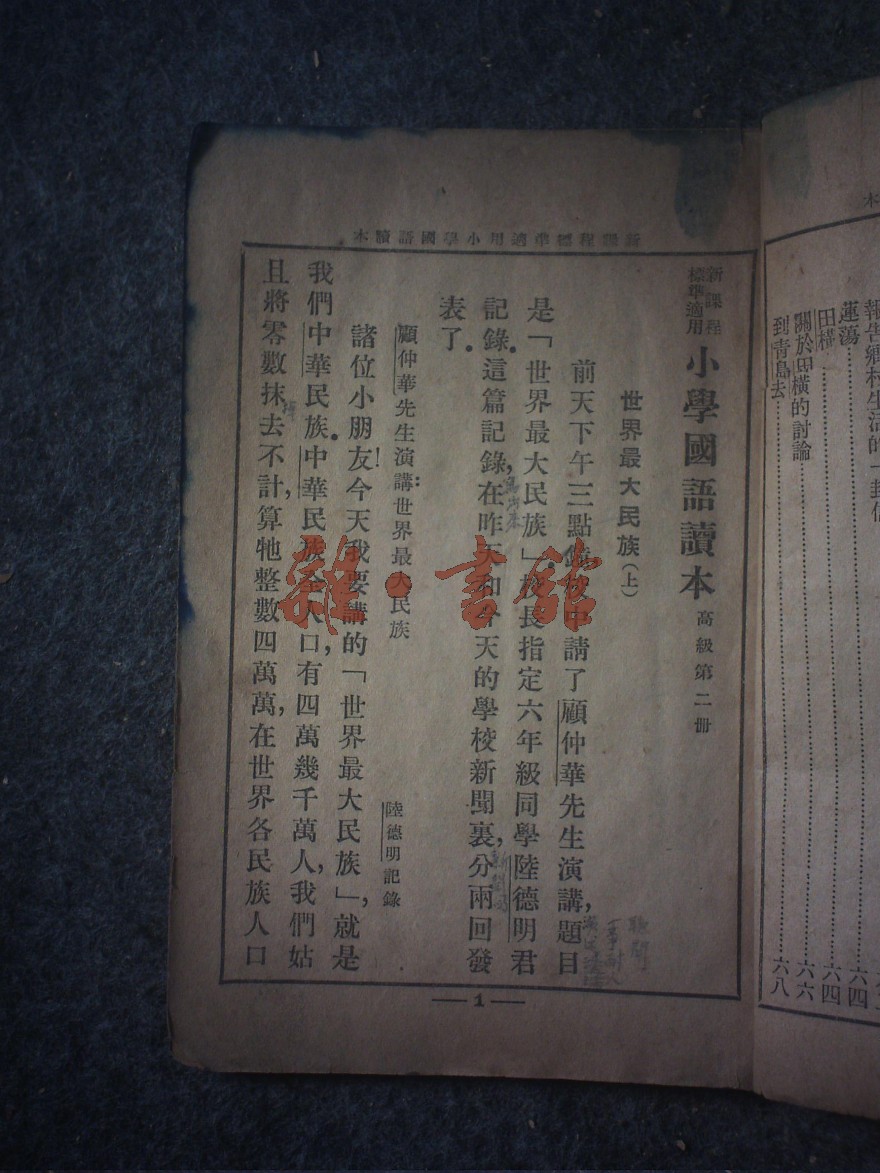 新課程標準適用小學國語讀本
新課程
標準適用
小學國語讀本 高級第二冊
世界最大民族(上)
前天下午三點鐘,校中請了顧仲華先生演講,題目
是「世界最大民族」.校長指定六年級同學陸德明君
記錄.這篇記錄,在昨天和今天的學校新聞裏,分兩回發
表了.
顧仲華先生演講:世界最大民族
陸德明記錄
諸位小朋友!今天我要講的「世界最大民族」,就是
我們中華民族.中華民族全人口,有四萬幾千萬人,我們姑
且將零數抹去不計,算牠整數四萬萬,在世界各民族人口
1
雜·書館
本
報告鄉村生活的一封信
蓮蕩……六四
田橫……六四
關於田橫的討論……六六
到青島去……六八